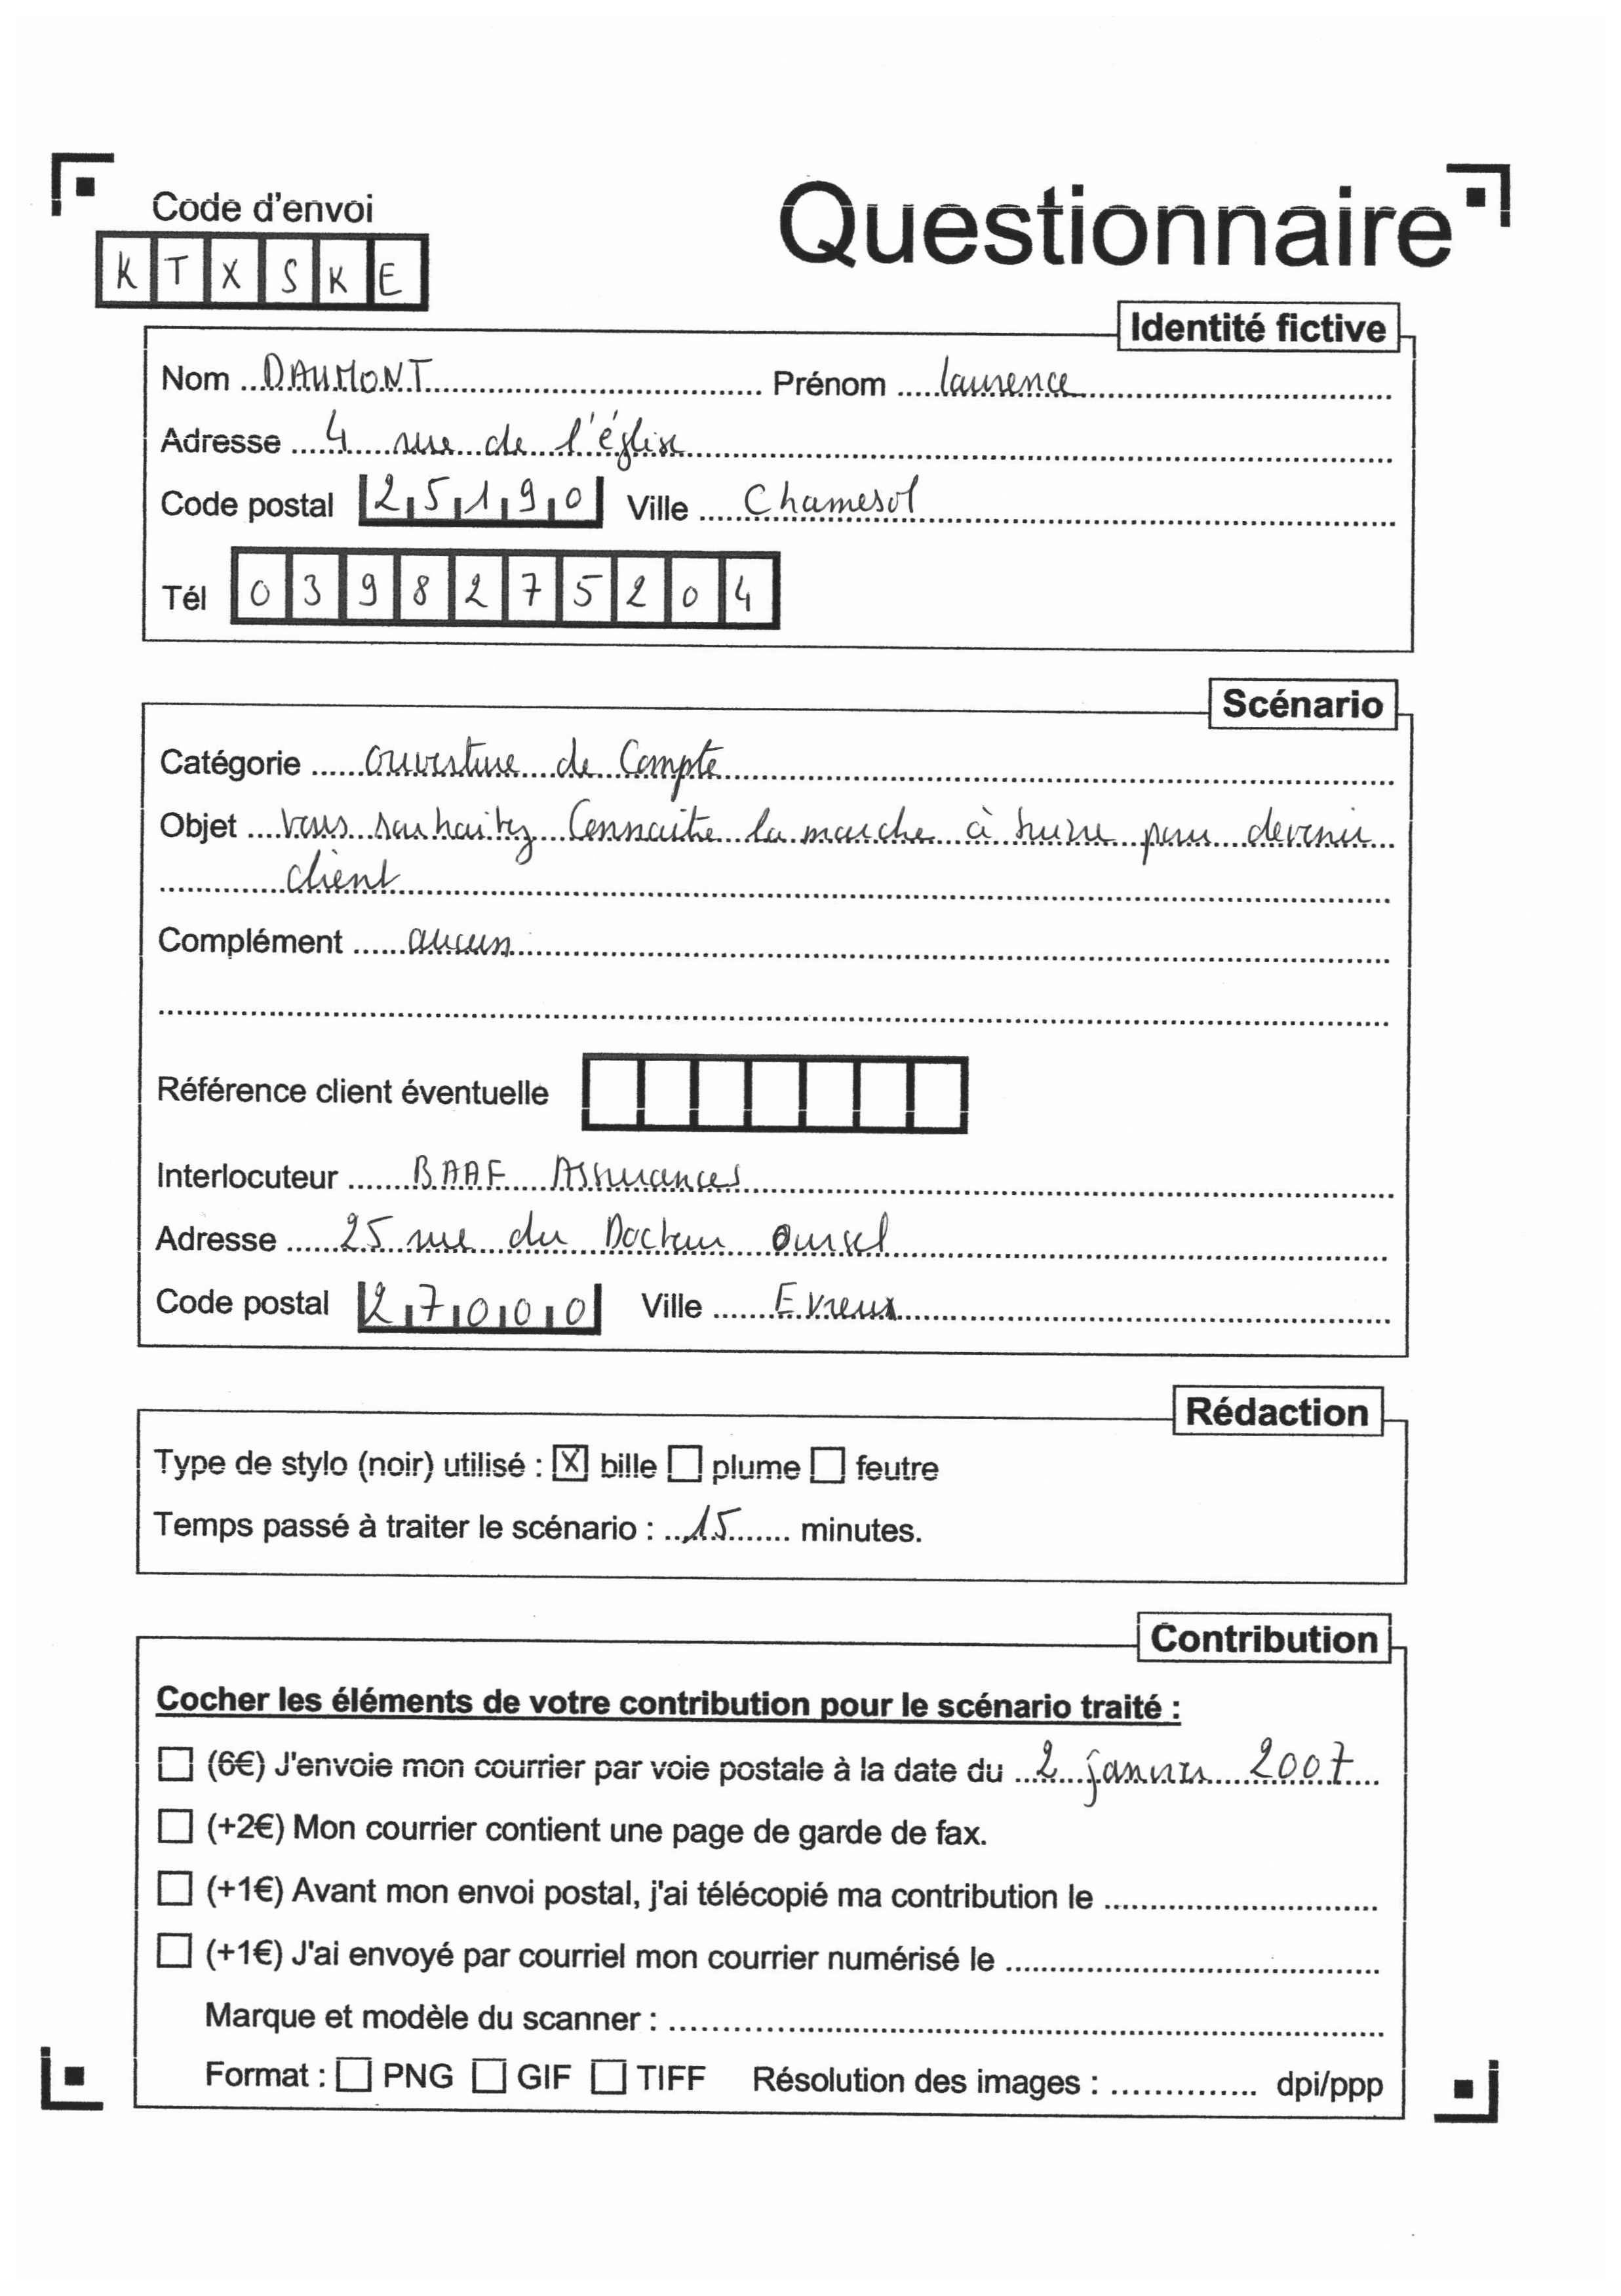 Code d'envoi
Questionnaire
K T X S K E
Identité fictive
Nom DAUMONT Prénom laurence
Adresse 4 rue de l'église
Code postal 25190 Ville Chamesol
Tél 0398275204
Scénario
Catégorie ouverture de Compte
Objet vous souhaitez Connaitre la marche à suivre pour devenir
client
Complément aucun
Référence client éventuelle
Interlocuteur BAAF Assurances
Adresse 25 rue du Docteur Oursel
Code postal 27000 Ville Evreux
Rédaction
Type de stylo (noir) utilisé : X bille plume feutre
Temps passé à traiter le scénario : 15 minutes.
Contribution
Cocher les éléments de votre contribution pour le scénario traité :
(6€) J'envoie mon courrier par voie postale à la date du 2 janvier 2007
(+2€) Mon courrier contient une page de garde de fax.
(+1€) Avant mon envoi postal, j'ai télécopié ma contribution le
(+1€) J'ai envoyé par courriel mon courrier numérisé le
Marque et modèle du scanner :
Format : PNG GIF TIFF Résolution des images : dpi/ppp